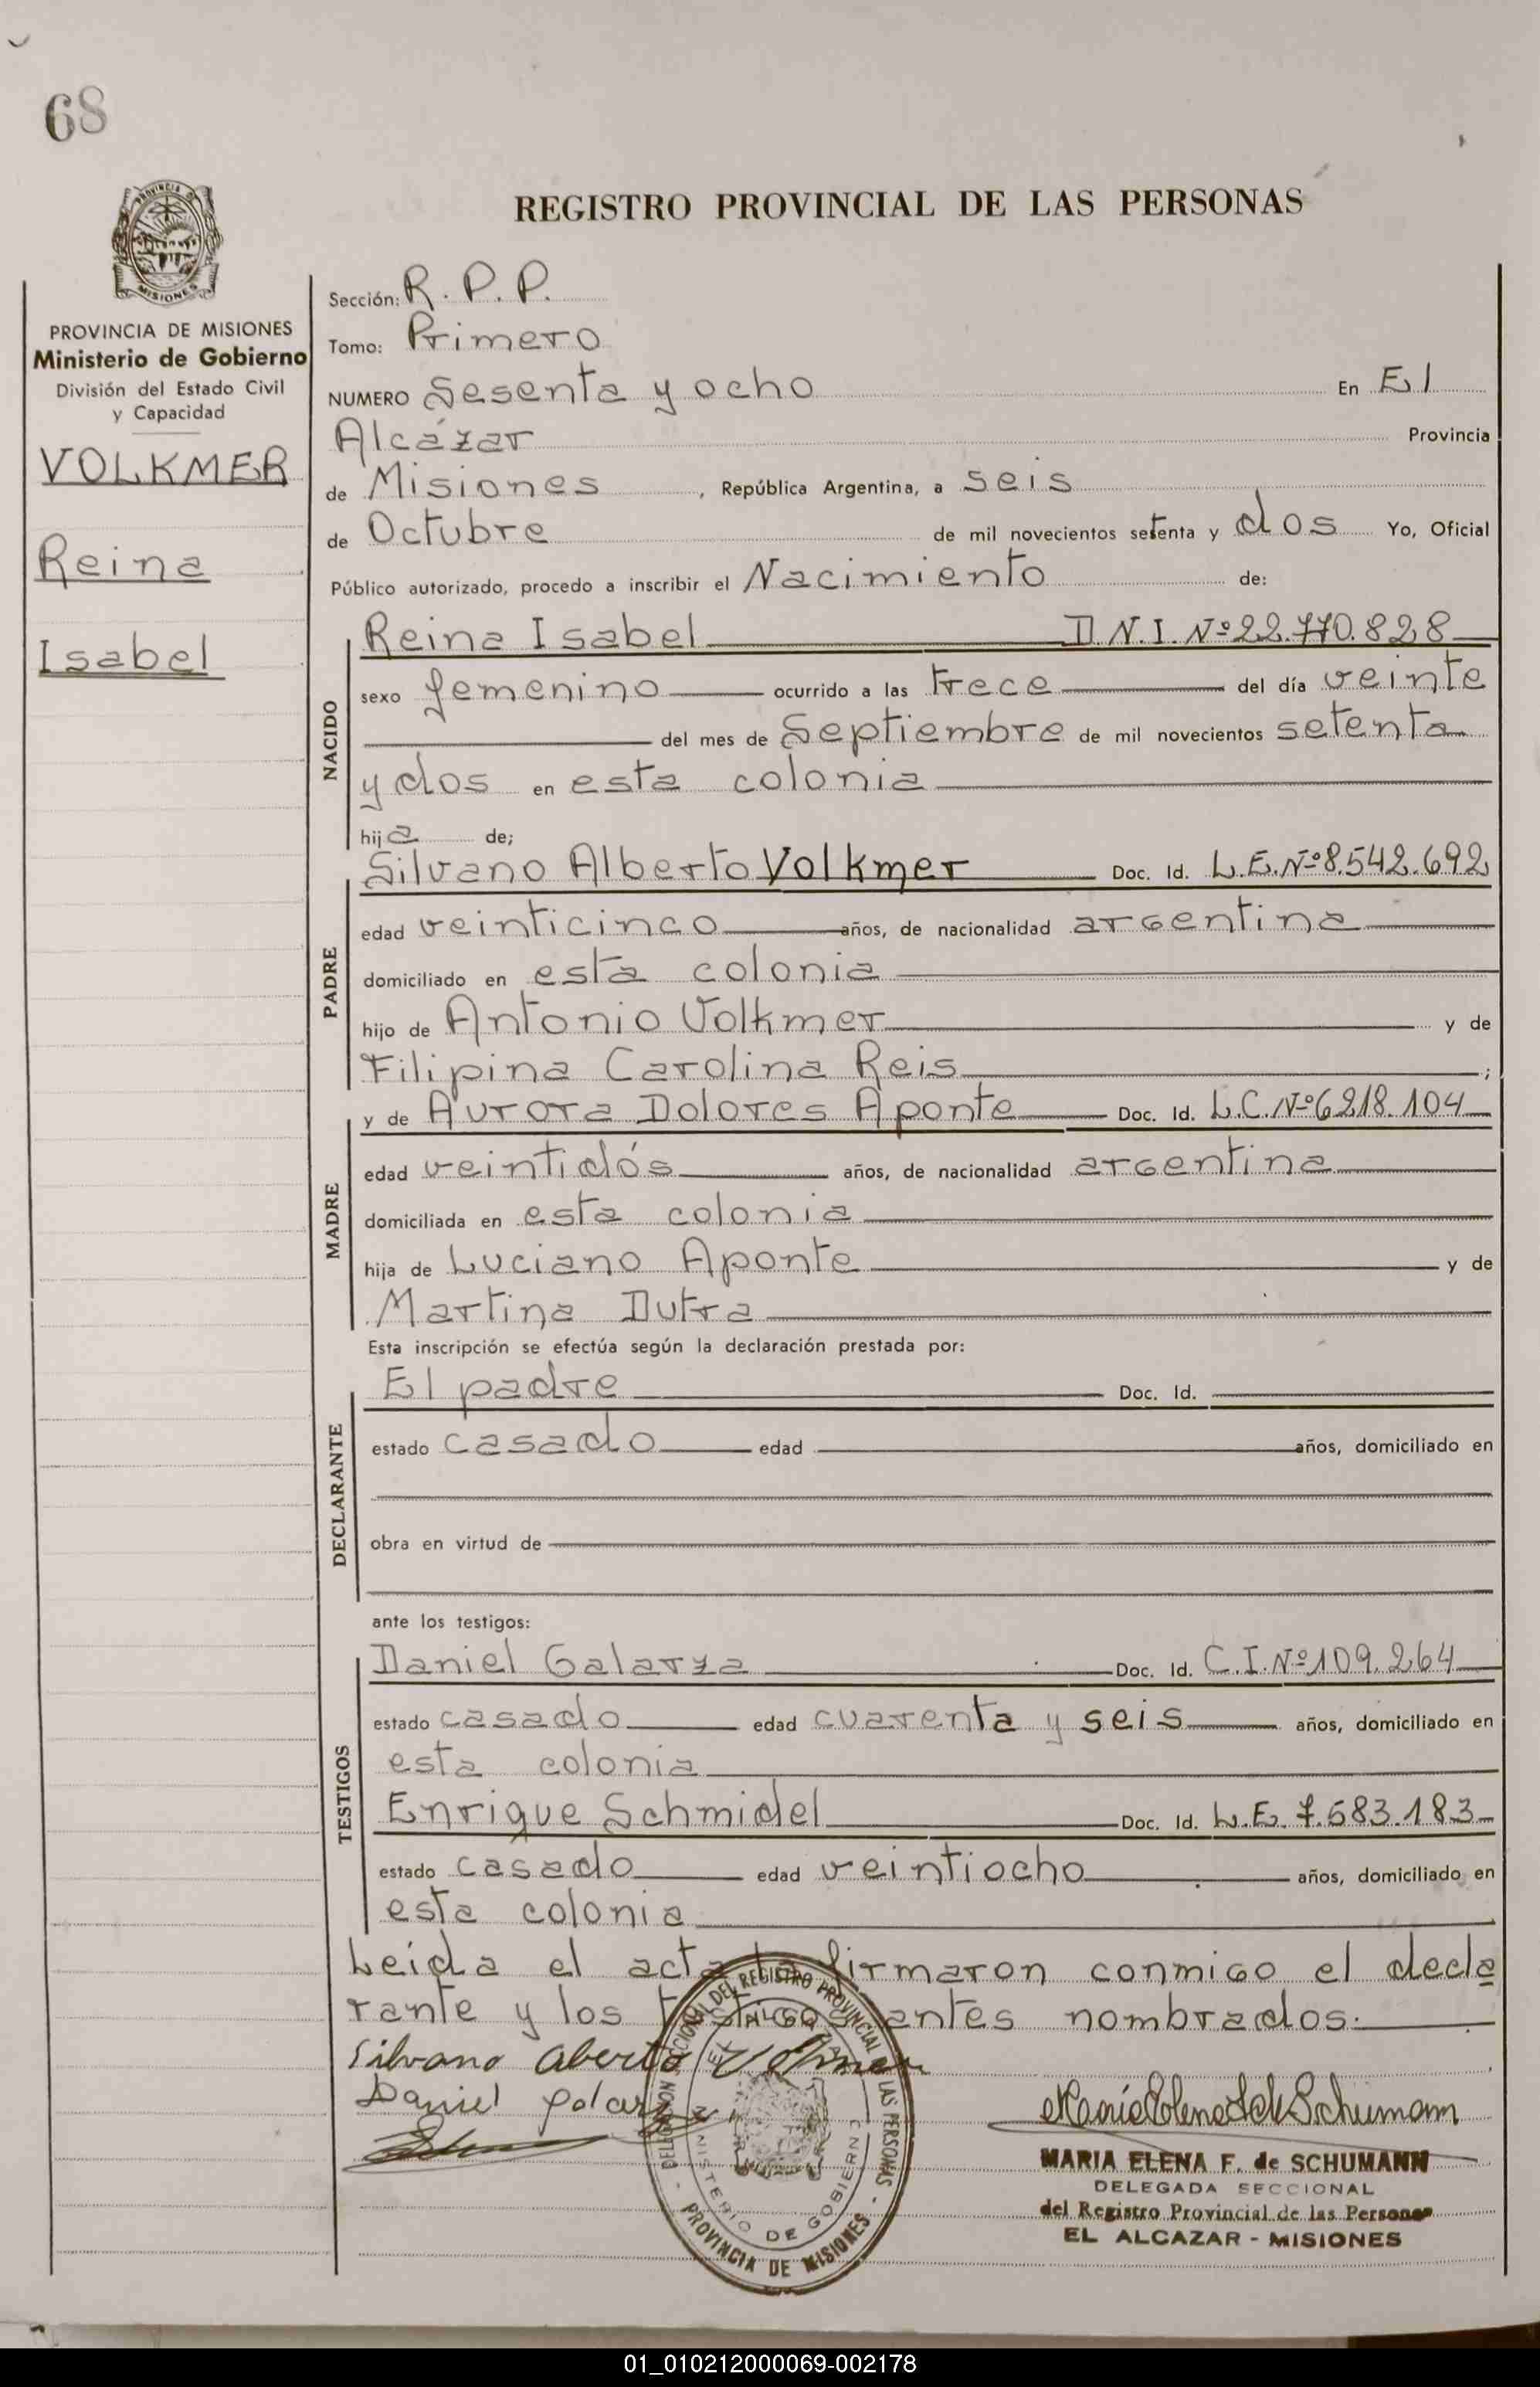 68
REGISTRO PROVINCIAL DE LAS PERSONAS
MISIONES
PROVINCIA DE MISIONES
Ministerio de Gobierno
División del Estado Civil
y Capacidad
VOLKMER
Reina
Isabel
Sección: R. P. P.
Tomo: Primero
NUMERO Sesenta y ocho En El
Alcázar Provincia
de Misiones , República Argentina, a seis
de Octubre de mil novecientos setenta y dos Yo, Oficial
Público autorizado, procedo a inscribir el Nacimiento de:
NACIDO
Reina Isabel D.N.I. Nº 22.770.828
sexo femenino ocurrido a las trece del día veinte
del mes de Septiembre de mil novecientos setenta
y dos en esta colonia
hija de;
PADRE
Silvano Alberto Volkmer Doc. Id. L.E. Nº 8.542.692
edad veinticinco años, de nacionalidad argentina
domiciliado en esta colonia
hijo de Antonio Volkmer y de
Filipina Carolina Reis ;
MADRE
y de Aurora Dolores Aponte Doc. Id. L.C. Nº 6218.104
edad veintidós años, de nacionalidad argentina
domiciliada en esta colonia
hija de Luciano Aponte y de
Martina Dutra
Esta inscripción se efectúa según la declaración prestada por:
DECLARANTE
El padre Doc. Id.
estado casado edad años, domiciliado en
obra en virtud de
ante los testigos:
TESTIGOS
Daniel Galarza Doc. Id. C.I. Nº 109.264
estado casado edad cuarenta y seis años, domiciliado en
esta colonia
Enrique Schmidel Doc. Id. L.E. 7.583.183
estado casado edad veintiocho años, domiciliado en
esta colonia
Leida el acta la firmaron conmigo el decla
rante y los testigos antes nombrados.
Silvano Aberto Volmer
Daniel Galarza
MARIA ELENA F. de SCHUMANN
DELEGADA SECCIONAL
del Registro Provincial de las Personas
EL ALCAZAR - MISIONES
DELEGACION SECCIONAL DEL REGISTRO PROVINCIAL DE LAS PERSONAS
EL ALCAZAR
MINISTERIO DE GOBIERNO
PROVINCIA DE MISIONES
01_010212000069-002178